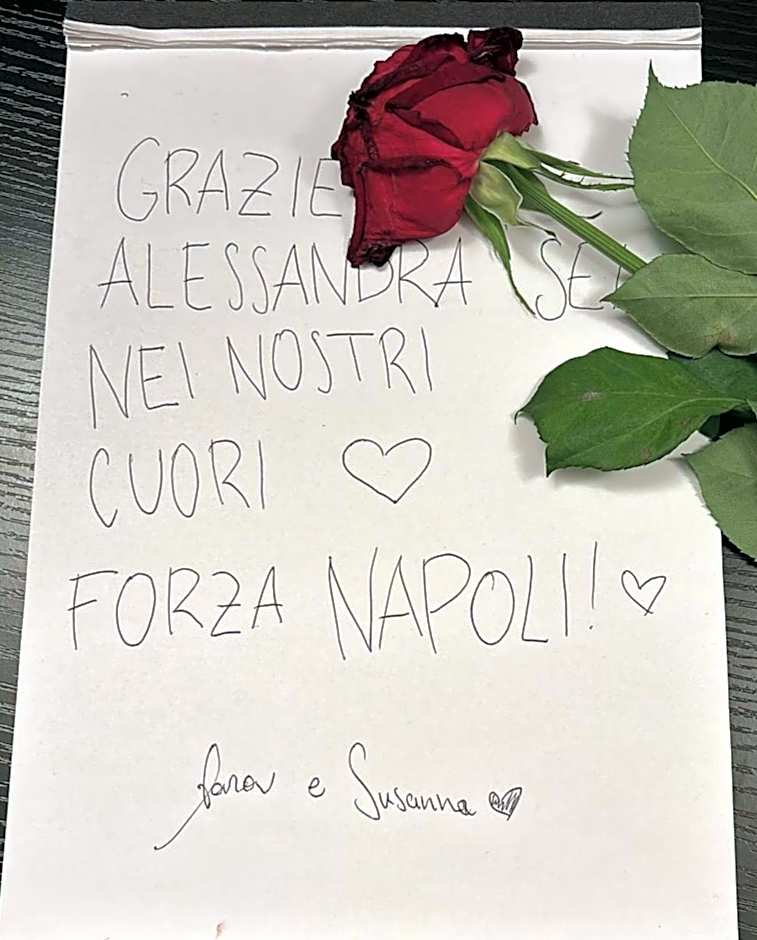 GRAZIE
ALESSANDRA SEI
NEI NOSTRI
CUORI ♡
FORZA NAPOLI! ♡
e Susanna ♥